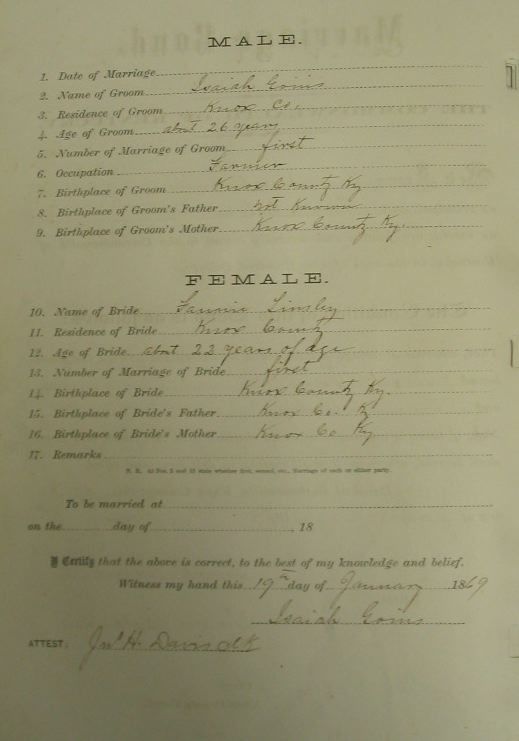 MALE.
1. Date of Marriage
2. Name of Groom Isaiah Goins
3. Residence of Groom Knox Co.
4. Age of Groom about 26 years
5. Number of Marriage of Groom first
6. Occupation Farmer
7. Birthplace of Groom Knox County Ky
8. Birthplace of Groom's Father Not Known
9. Birthplace of Groom's Mother Knox County Ky.
FEMALE.
10. Name of Bride Fannie Linsley
11. Residence of Bride Knox County
12. Age of Bride about 22 years of age
13. Number of Marriage of Bride first
14. Birthplace of Bride Knox County Ky.
15. Birthplace of Bride's Father Knox Co. Ky
16. Birthplace of Bride's Mother Knox Co Ky
17. Remarks
N. B. At Nos. 5 and 13 state whether first, second, etc., Marriage of each or either party.
To be married at
on the day of , 18
I Certify that the above is correct, to the best of my knowledge and belief.
Witness my hand this 19th day of January 1869
Isaiah Goins
ATTEST: Jno H. Davis clk